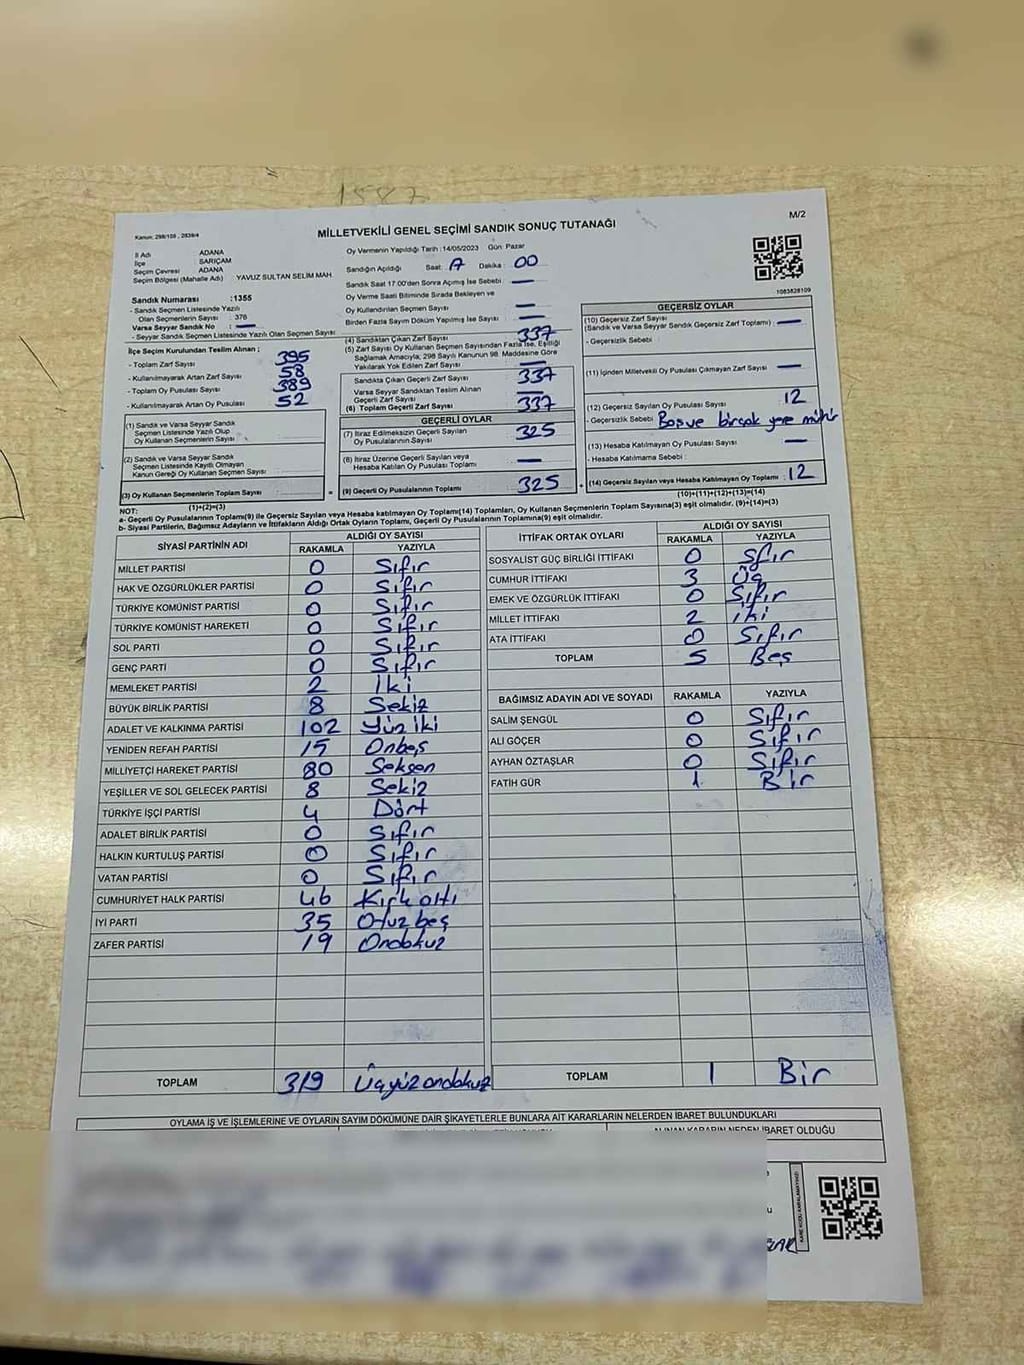 1587
M/2
Kanun: 298/105 , 2839/4
MİLLETVEKİLİ GENEL SEÇİMİ SANDIK SONUÇ TUTANAĞI
İl Adı ADANA
İlçe SARIÇAM
Seçim Çevresi ADANA
Seçim Bölgesi (Mahalle Adı) YAVUZ SULTAN SELİM MAH.
Sandık Numarası :1355
- Sandık Seçmen Listesinde Yazılı
Olan Seçmenlerin Sayısı : 376
Varsa Seyyar Sandık No : —
- Seyyar Sandık Seçmen Listesinde Yazılı Olan Seçmen Sayısı
İlçe Seçim Kurulundan Teslim Alınan ;
- Toplam Zarf Sayısı 395
- Kullanılmayarak Artan Zarf Sayısı 58
- Toplam Oy Pusulası Sayısı 389
- Kullanılmayarak Artan Oy Pusulası 52
(1) Sandık ve Varsa Seyyar Sandık
Seçmen Listesinde Yazılı Olup
Oy Kullanan Seçmenlerin Sayısı
(2) Sandık ve Varsa Seyyar Sandık
Seçmen Listesinde Kayıtlı Olmayan
Kanun Gereği Oy Kullanan Seçmen Sayısı
(3) Oy Kullanan Seçmenlerin Toplam Sayısı
(1)+(2)=(3)
Oy Vermenin Yapıldığı Tarih :14/05/2023 Gün Pazar
Sandığın Açıldığı Saat: Dakika : 00
Sandık Saat 17.00'den Sonra Açılmış İse Sebebi : —
Oy Verme Saati Bitiminde Sırada Bekleyen ve
Oy Kullandırılan Seçmen Sayısı —
Birden Fazla Sayım Döküm Yapılmış İse Sayısı : —
(4) Sandıktan Çıkan Zarf Sayısı 337
(5) Zarf Sayısı Oy Kullanan Seçmen Sayısından Fazla İse, Eşitliği
Sağlamak Amacıyla; 298 Sayılı Kanunun 98. Maddesine Göre
Yakılarak Yok Edilen Zarf Sayısı —
Sandıkta Çıkan Geçerli Zarf Sayısı 337
Varsa Seyyar Sandıktan Teslim Alınan
Geçerli Zarf Sayısı —
(6) Toplam Geçerli Zarf Sayısı 337
GEÇERLİ OYLAR
(7) İtiraz Edilmeksizin Geçerli Sayılan
Oy Pusulalarının Sayısı 325
(8) İtiraz Üzerine Geçerli Sayılan veya
Hesaba Katılan Oy Pusulası Toplamı —
= (9) Geçerli Oy Pusulalarının Toplamı 325
1083828109
GEÇERSİZ OYLAR
(10) Geçersiz Zarf Sayısı
(Sandık ve Varsa Seyyar Sandık Geçersiz Zarf Toplamı) : —
- Geçersizlik Sebebi :
(11) İçinden Milletvekili Oy Pusulası Çıkmayan Zarf Sayısı —
(12) Geçersiz Sayılan Oy Pusulası Sayısı 12
- Geçersizlik Sebebi : Boş ve birçok yere mühür
(13) Hesaba Katılmayan Oy Pusulası Sayısı —
- Hesaba Katılmama Sebebi :
+ (14) Geçersiz Sayılan veya Hesaba Katılmayan Oy Toplamı : 12
(10)+(11)+(12)+(13)=(14)
NOT:
a- Geçerli Oy Pusulalarının Toplamı(9) ile Geçersiz Sayılan veya Hesaba Katılmayan Oy Toplamı(14) Toplamları, Oy Kullanan Seçmenlerin Toplam Sayısına(3) eşit olmalıdır. (9)+(14)=(3)
b- Siyasi Partilerin, Bağımsız Adayların ve İttifakların Aldığı Ortak Oyların Toplamı, Geçerli Oy Pusulalarının Toplamına(9) eşit olmalıdır.
SİYASİ PARTİNİN ADI ALDIĞI OY SAYISI
RAKAMLA YAZIYLA
MİLLET PARTİSİ 0 Sıfır
HAK VE ÖZGÜRLÜKLER PARTİSİ 0 Sıfır
TÜRKİYE KOMÜNİST PARTİSİ 0 Sıfır
TÜRKİYE KOMÜNİST HAREKETİ 0 Sıfır
SOL PARTİ 0 Sıfır
GENÇ PARTİ 0 Sıfır
MEMLEKET PARTİSİ 2 İki
BÜYÜK BİRLİK PARTİSİ 8 Sekiz
ADALET VE KALKINMA PARTİSİ 102 Yüz iki
YENİDEN REFAH PARTİSİ 15 Onbeş
MİLLİYETÇİ HAREKET PARTİSİ 80 Seksen
YEŞİLLER VE SOL GELECEK PARTİSİ 8 Sekiz
TÜRKİYE İŞÇİ PARTİSİ 4 Dört
ADALET BİRLİK PARTİSİ 0 Sıfır
HALKIN KURTULUŞ PARTİSİ 0 Sıfır
VATAN PARTİSİ 0 Sıfır
CUMHURİYET HALK PARTİSİ 46 Kırk altı
İYİ PARTİ 35 Otuz beş
ZAFER PARTİSİ 19 Ondokuz
TOPLAM 319 Üçyüz ondokuz
İTTİFAK ORTAK OYLARI ALDIĞI OY SAYISI
RAKAMLA YAZIYLA
SOSYALİST GÜÇ BİRLİĞİ İTTİFAKI 0 Sıfır
CUMHUR İTTİFAKI 3 Üç
EMEK VE ÖZGÜRLÜK İTTİFAKI 0 Sıfır
MİLLET İTTİFAKI 2 iki
ATA İTTİFAKI 0 Sıfır
TOPLAM 5 Beş
BAĞIMSIZ ADAYIN ADI VE SOYADI RAKAMLA YAZIYLA
SALİM ŞENGÜL 0 Sıfır
ALİ GÖÇER 0 Sıfır
AYHAN ÖZTAŞLAR 0 Sıfır
FATİH GÜR 1 Bir
TOPLAM 1 Bir
OYLAMA İŞ VE İŞLEMLERİNE VE OYLARIN SAYIM DÖKÜMÜNE DAİR ŞİKAYETLERLE BUNLARA AİT KARARLARIN NELERDEN İBARET BULUNDUKLARI
ALINAN KARARIN NEDEN İBARET OLDUĞU
KARE KODU KARALAMAYINIZ!